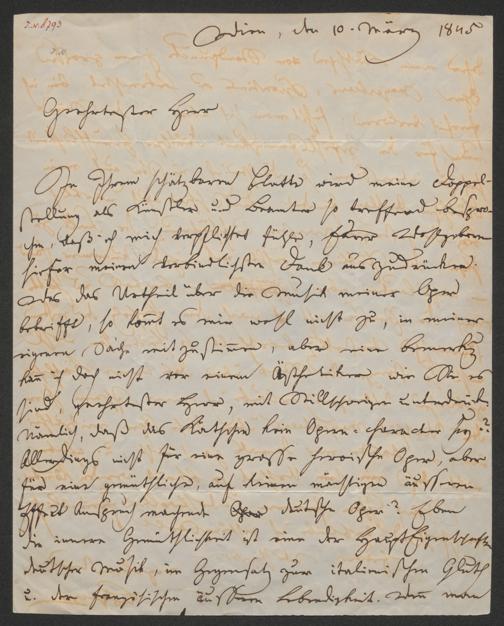 I.N. 8793
Wien, den 10. März 1845
Geehrtester Herr
In Ihrem schätzbaren Blatte wird meine Doppel-
stellung als Künstler und Beamter so treffend bespro-
chen, daß ich mich verpflichtet fühle, Euer Wohlgeboren
hiefür meinen verbindlichsten Dank auszudrücken.
Was das Urtheil über die Musik meiner Oper
betrifft, so kömmt es mir wohl nicht zu, in meiner
eigenen Sache mitzustimmen, aber eine Bemerkung
kann ich doch nicht vor einem Ästhetiker wie Sie es
sind, geehrtester Herr, mit Stillschweigen unterdrücken
nämlich, daß das Käthchen kein Opern-Character sey?
Allerdings nicht für eine grosse heroische Oper, aber
für eine gemüthliche, auf keinen mächtigen äussern
Effect Anspruch machende deutsche Oper? Eben
die innere Gemüthlichkeit ist eine der Haupteigenschaften
deutscher Musik, im Gegensatz zur italienischen Gluth
u. der französischen äussern Lebendigkeit. Wenn man